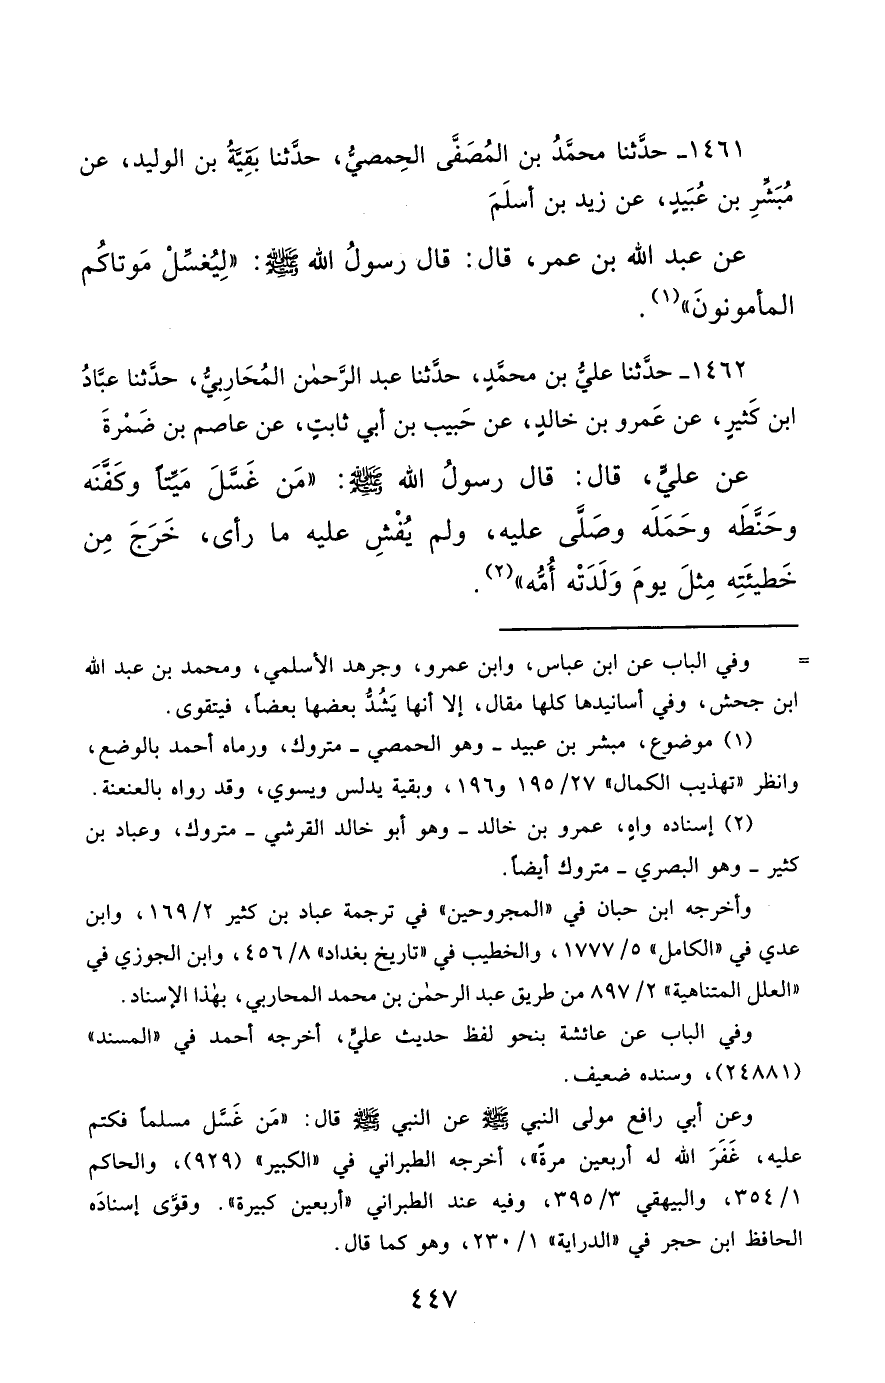 ١٤٦١ـ حدَّثنا محمَّدُ بن المُصَفَّى الحِمصيُّ، حدَّثنا بَقِيَّةُ بن الوليد، عن
مُبَشِّرِ بن عُبَيدٍ، عن زيد بن أسلَمَ
عن عبد الله بن عمر، قال: قال رسولُ الله ﷺ: «لِيُغسِّلْ مَوتاكُم
المأمونونَ»(١).
١٤٦٢ـ حدَّثنا عليُّ بن محمَّدٍ، حدَّثنا عبد الرَّحمٰن المُحَارِبيُّ، حدَّثنا عبَّادُ
ابن كَثيرٍ، عن عَمرو بن خالدٍ، عن حَبيب بن أبي ثابتٍ، عن عاصم بن ضَمْرةَ
عن عليٍّ، قال: قال رسولُ الله ﷺ: «مَن غَسَّلَ مَيِّتاً وكَفَّنَه
وحَنَّطَه وحَمَلَه وصَلَّى عليه، ولم يُفْشِ عليه ما رأى، خَرَجَ مِن
خَطيئَتِه مِثلَ يومَ وَلَدَتْه أُمُّه»(٢).
= وفي الباب عن ابن عباس، وابن عمرو، وجرهد الأسلمي، ومحمد بن عبد الله
ابن جحش، وفي أسانيدها كلها مقال، إلا أنها يَشُدُّ بعضها بعضاً، فيتقوى.
(١) موضوع، مبشر بن عبيد ـ وهو الحمصي ـ متروك، ورماه أحمد بالوضع،
وانظر «تهذيب الكمال» ٢٧/ ١٩٥ و١٩٦، وبقية يدلس ويسوي، وقد رواه بالعنعنة.
(٢) إسناده واهٍ، عمرو بن خالد ـ وهو أبو خالد القرشي ـ متروك، وعباد بن
كثير ـ وهو البصري ـ متروك أيضاً.
وأخرجه ابن حبان في «المجروحين» في ترجمة عباد بن كثير ٢/ ١٦٩، وابن
عدي في «الكامل» ٥/ ١٧٧٧، والخطيب في «تاريخ بغداد» ٨/ ٤٥٦، وابن الجوزي في
«العلل المتناهية» ٢/ ٨٩٧ من طريق عبد الرحمٰن بن محمد المحاربي، بهٰذا الإسناد.
وفي الباب عن عائشة بنحو لفظ حديث عليٍّ، أخرجه أحمد في «المسند»
(٢٤٨٨١)، وسنده ضعيف.
وعن أبي رافع مولى النبي ﷺ عن النبي ﷺ قال: «مَن غَسَّل مسلماً فكتم
عليه، غَفَرَ الله له أربعين مرةً»، أخرجه الطبراني في «الكبير» (٩٢٩)، والحاكم
١/ ٣٥٤، والبيهقي ٣/ ٣٩٥، وفيه عند الطبراني «أربعين كبيرة». وقوَّى إسنادَه
الحافظ ابن حجر في «الدراية» ١/ ٢٣٠، وهو كما قال.
٤٤٧